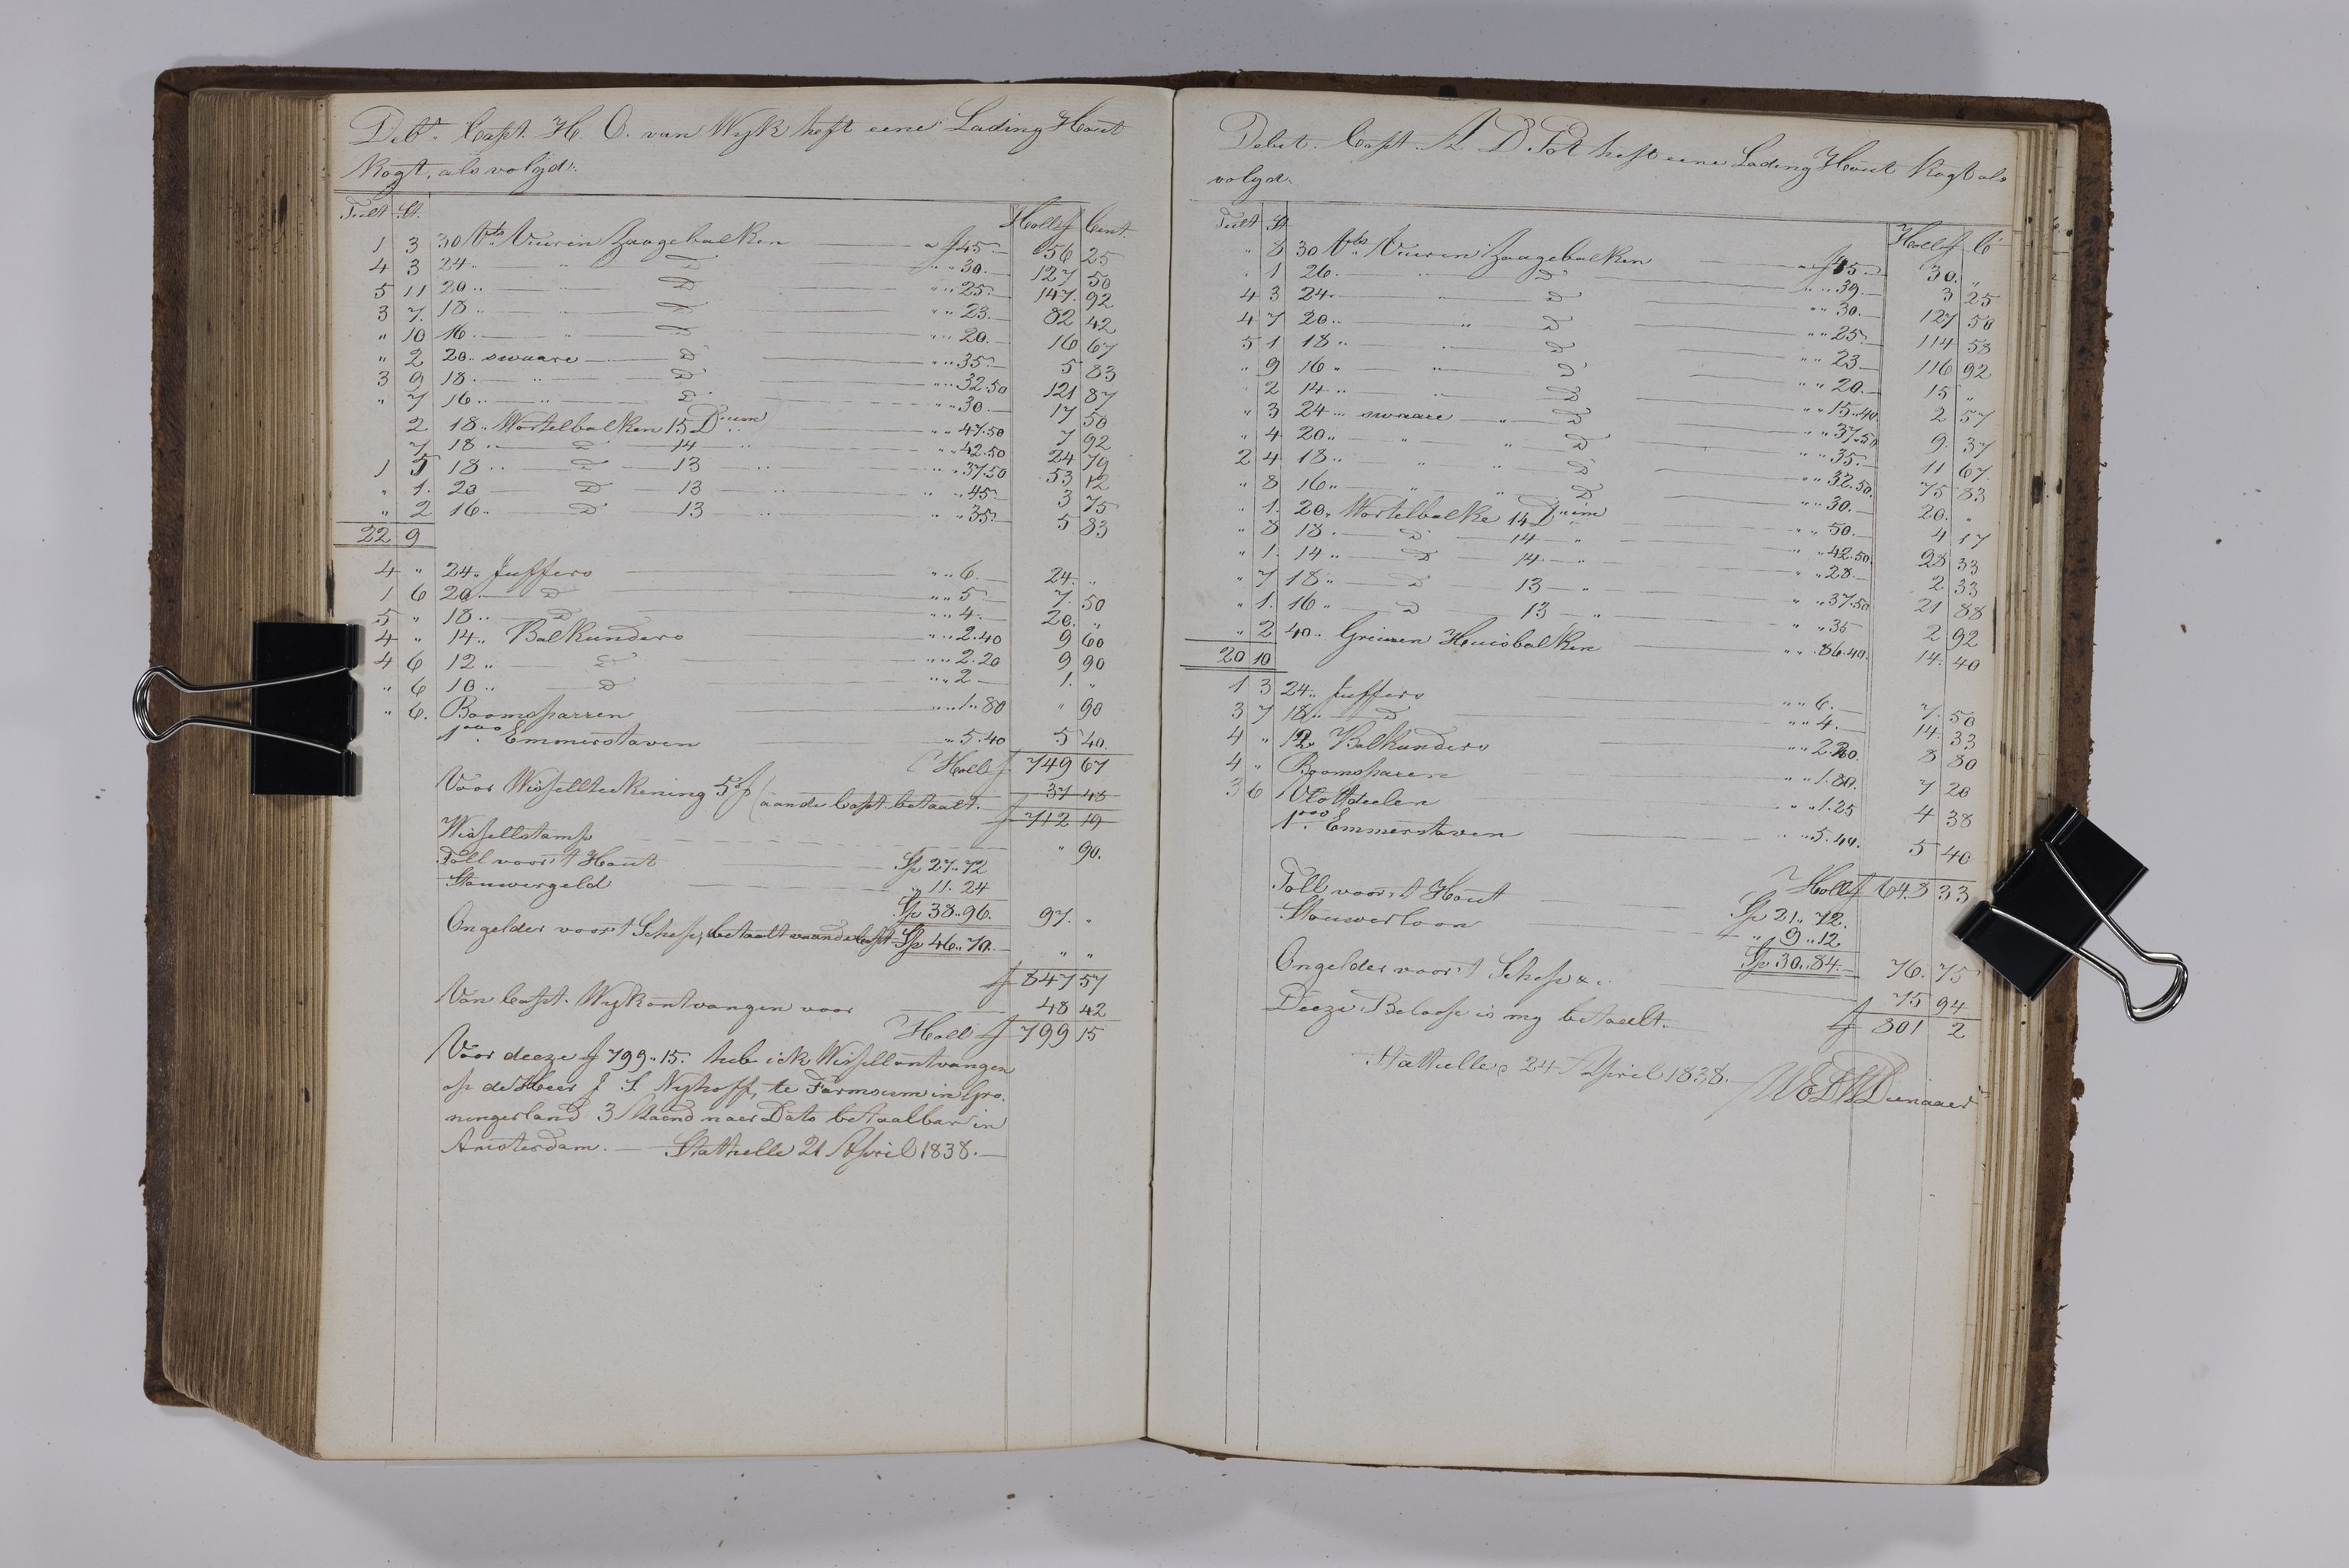 Debt. Capt. H. O. van Wyk heft eene Lading Hout
Kogt, als volgd:
Tult St. Holl f Cent.
1 3 30 Vts Vuuren Zaagebalken a f 45. 56 25
4 3 24 .. .. D .. .. 30. 127 50
5 11 20 .. .. D .. .. 25. 147. 92
3 7. 18 .. .. D .. .. 23. 82 42
" 10 16 .. .. D .. .. 20. 16 67
" 2 20 .. swaare D .. .. 35. 5 83
3 9 18 .. .. D .. .. 32.50 121 87
" 7 16 .. .. D .. .. 30. 17 50
2 18 .. Wortelbalken 15 Duim .. .. 47.50 7 92
7 18 .. D 14 .. .. .. 42.50 24 79
1 5 18 .. D 13 .. .. .. 37.50 53 12
" 1. 20 D 13 .. .. .. 45. 3 75
" 2 16 .. D 13 .. .. .. 35. 5 83
22 9
4 " 24 .. Juffers .. .. 6. 24. "
1 6 20 .. D .. .. 5 7. 50
5 " 18 .. D .. .. 4. 20. "
4 " 14 .. Balkunders .. .. 2.40 9 60
4 6 12 .. D .. .. 2.20 9 90
" 6 10 .. D .. .. 2 1. "
" 6. Boomsparren .. .. 1.80 " 90
1000 Emmerstaven .. 5.40 5 40.
Holl f 749 67
Voor Wissellteekening 5 (aande Capt. betaalt. 37 48
f 712 19
Wissellstamp " 90.
Toll voor't Hout Sp 27..72
Stouwergeld " 11. 24
Sp 38..96. 97. "
Ongelder voor't Schep, betaalt vaande Capt Sp 46..70. " "
f 847 57
Van Capt. Wyk ontvangen voor 48 42
Holl f 799 15
Voor deeze f 799..15. heb ick Wissell ontvangen
op de Heer J. S. Nyhoff, te Farmsum in Gro.
ningerland 3 Maend naer Dato betaalbar in
Amsterdam. — Stathelle 21 April 1838. —
Debet. Capt. A. D. Pot heft eene Lading Hout Kogt als
volgd.
Tult St Holl f C
" 8 30 Vts Vuuren Zaagebalken a f 45. 30. "
" 1 26 .. .. D .. .. 39. 3 25
4 3 24 .. .. D .. .. 30. 127 50
4 7 20 .. .. D .. .. 25. 114 58
5 1 18 .. .. D .. .. 23 116 92
" 9 16 .. .. D .. .. 20. 15 "
" 2 14 .. .. D .. .. 15.40. 2 57
" 3 24 .. swaare .. D .. .. 37.50 9. 37
" 4 20 .. .. .. D .. .. 35. 11 67.
2 4 18 .. .. .. D .. .. 32.50. 75 83
" 8 16 .. .. .. D .. .. 30. 20. "
" 1. 20 .. Wortelbalke 14 Duim .. .. 50. 4 17
" 8 18 .. D 14 .. .. .. 42.50. 28 33
" 1. 14 .. D 14 .. .. .. 28. 2 33
" 7 18 .. D 13 .. .. .. 37.50 21 88
" 1. 16 .. D 13 .. .. .. 35 2 92
" 2 40 .. Greinen Huisbalken .. .. 86.40. 14. 40
20 10
1 3 24 .. Juffers .. .. 6. 7. 50
3 7 18 .. D .. .. 4. 14. 33
4 " 12 .. Balkunders .. .. 2.20. 8 80
4 " Boomsparen .. .. 1.80. 7 20
3 6 Vlottdeelen .. .. 1.25 4 38
1000 Emmerstaven .. .. 5.40. 5 40
Holl f 648 33
Toll voor't Hout Sp 21..72.
Stouwerloon " 9..12
Sp 30..84. 76. 75
Ongelder voor't Schep &.. 75 94
f 801 2
Deeze Beloop is my betaelt.
Stathelle 24 April 1838.
Dienaaer